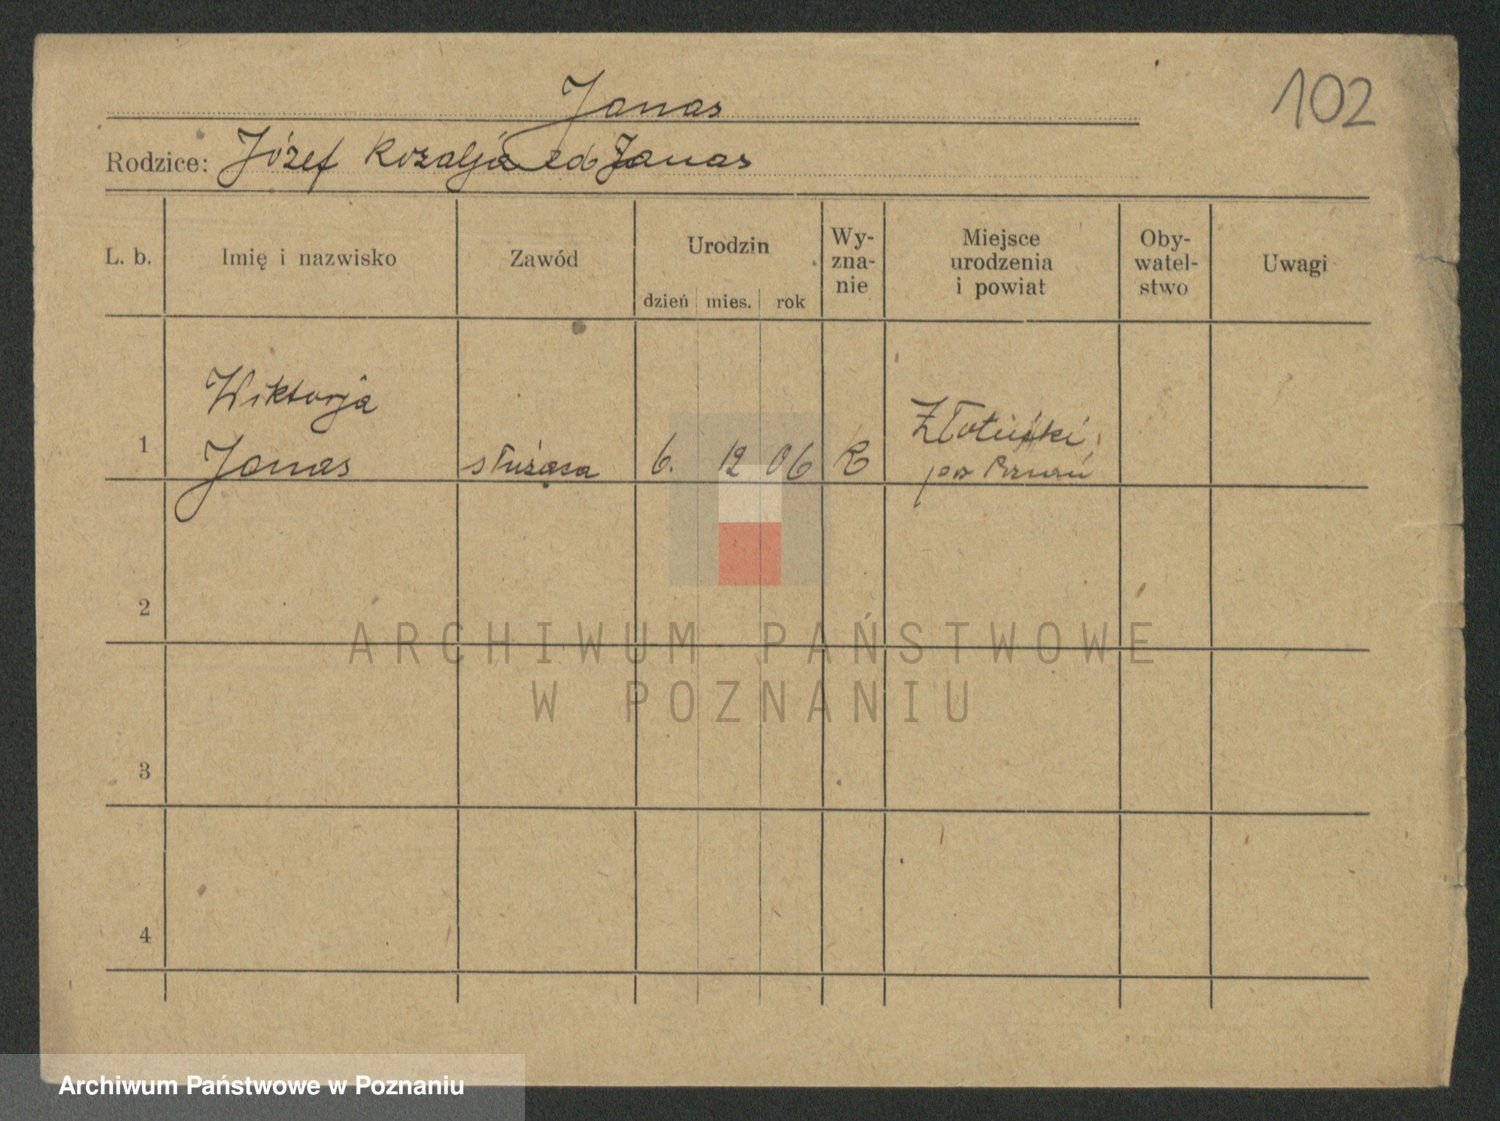 102
Janas
Rodzice: Józef Rozalja zd Janas
L. b. Imię i nazwisko Zawód Urodzin dzień mies. rok Wy-zna-nie Miejsce urodzenia i powiat Oby-watel-stwo Uwagi
Wiktorja
1 Janas służąca 6. 12 06 R
pow Poznań
2
3
4
ARCHIWUM PAŃSTWOWE
W POZNANIU
Archiwum Państwowe w Poznaniu